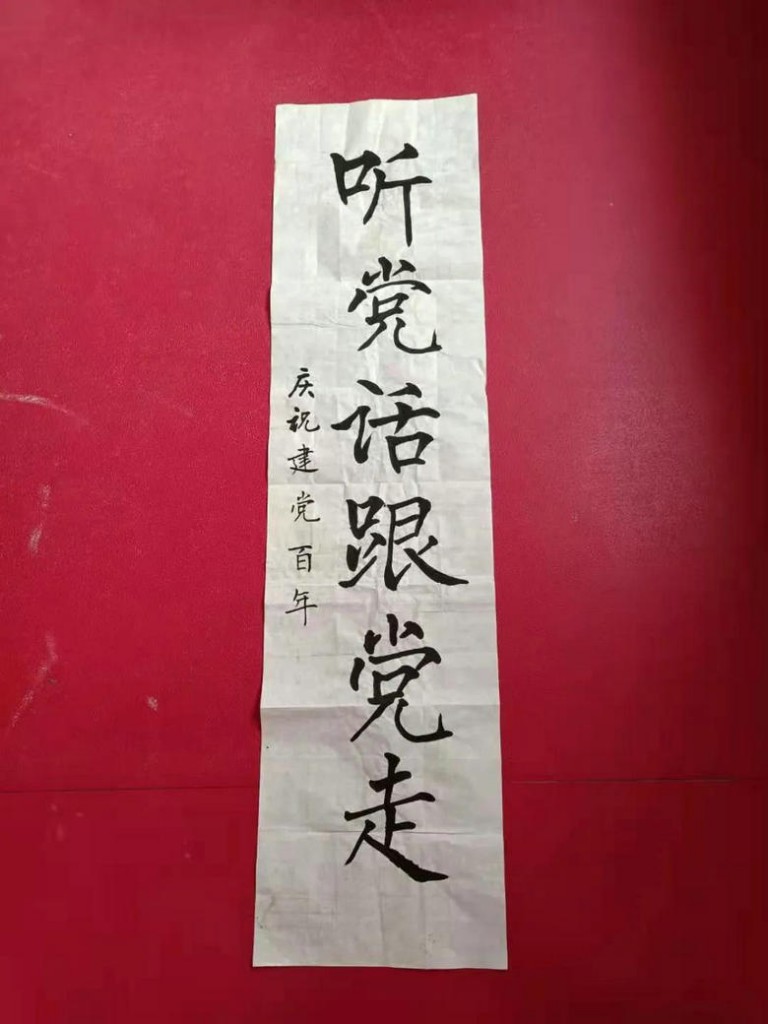 听党话跟党走
庆祝建党百年